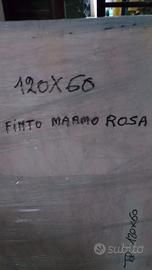 120X60
FINTO MARMO ROSA
120x60
subito